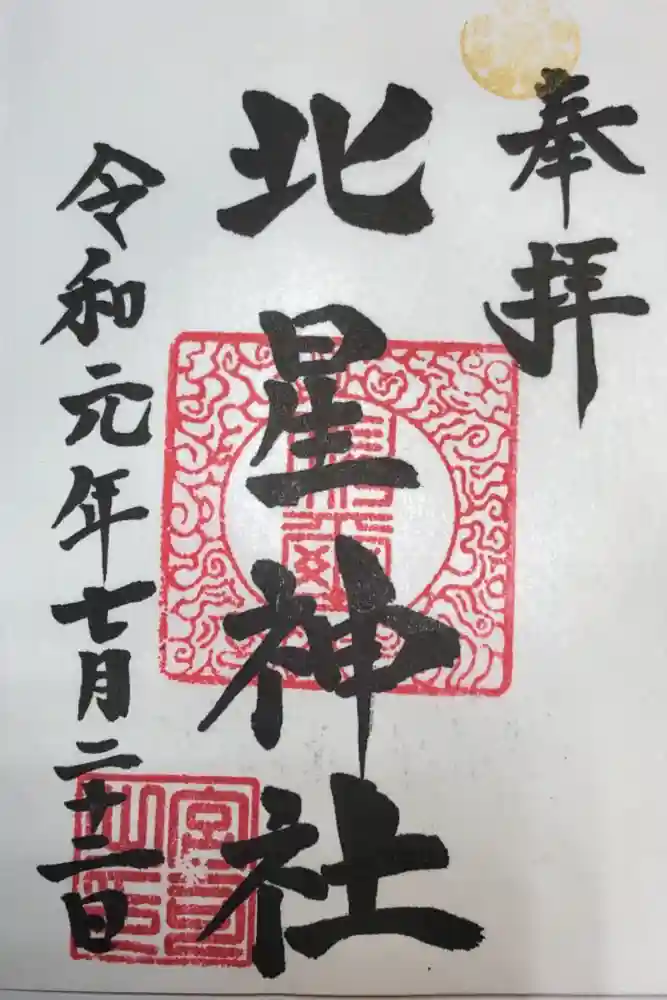 奉拝
北星神社
令和元年七月二十二日